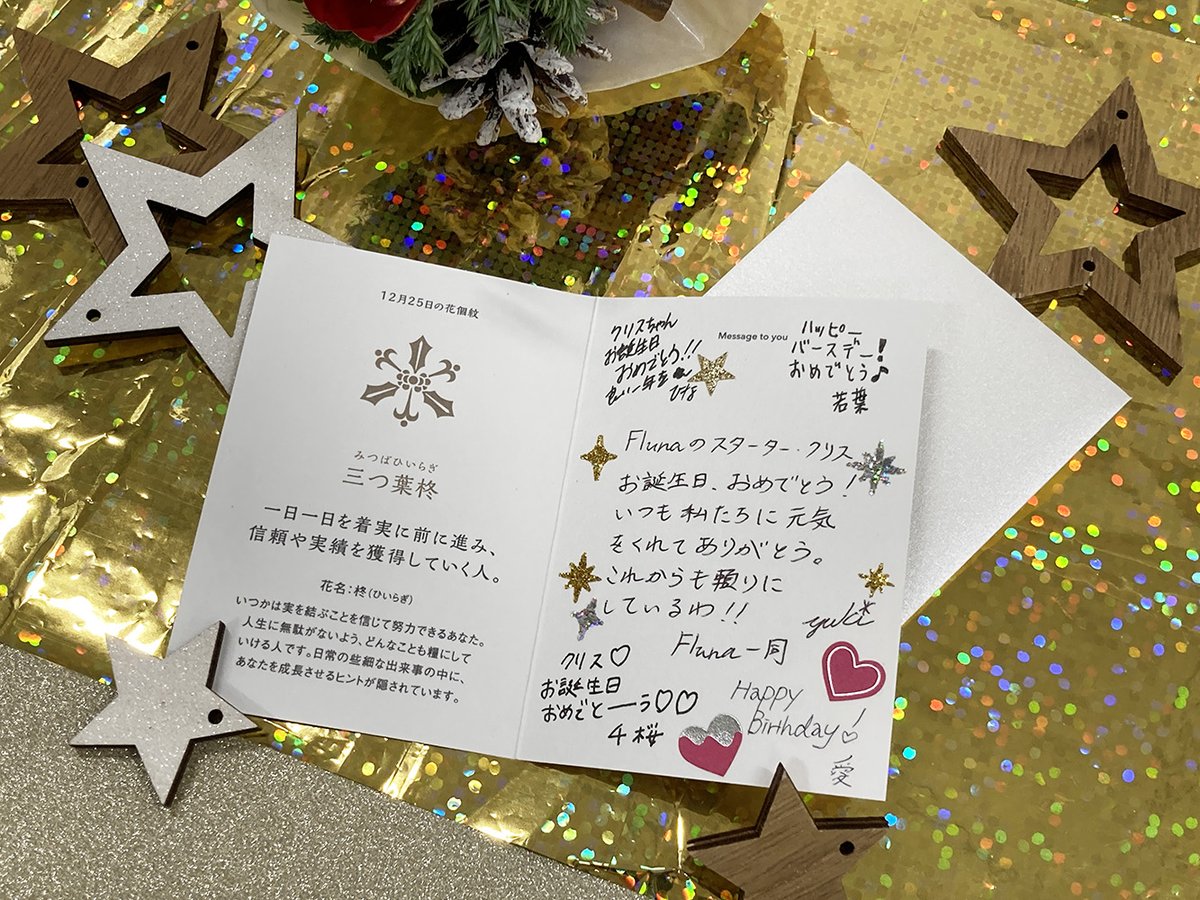 12月25日の花個紋
みつばひいらぎ
三つ葉柊
一日一日を着実に前に進み、
信頼や実績を獲得していく人。
花名：柊（ひいらぎ）
いつかは実を結ぶことを信じて努力できるあなた。
人生に無駄がないよう、どんなことも糧にして
いける人です。日常の些細な出来事の中に、
あなたを成長させるヒントが隠されています。
Message to you
クリスちゃん
お誕生日
おめでとう!!
良い一年を
ひな
ハッピー
バースデー!
おめでとう♪
若葉
Flunaのスターター・クリス
お誕生日、おめでとう!
いつも私たちに元気
をくれてありがとう。
これからも頼りに
しているわ!!
yuki
Fluna一同
クリス♡
お誕生日
おめでとーーう♡♡
千桜
Happy
Birthday!♡
愛